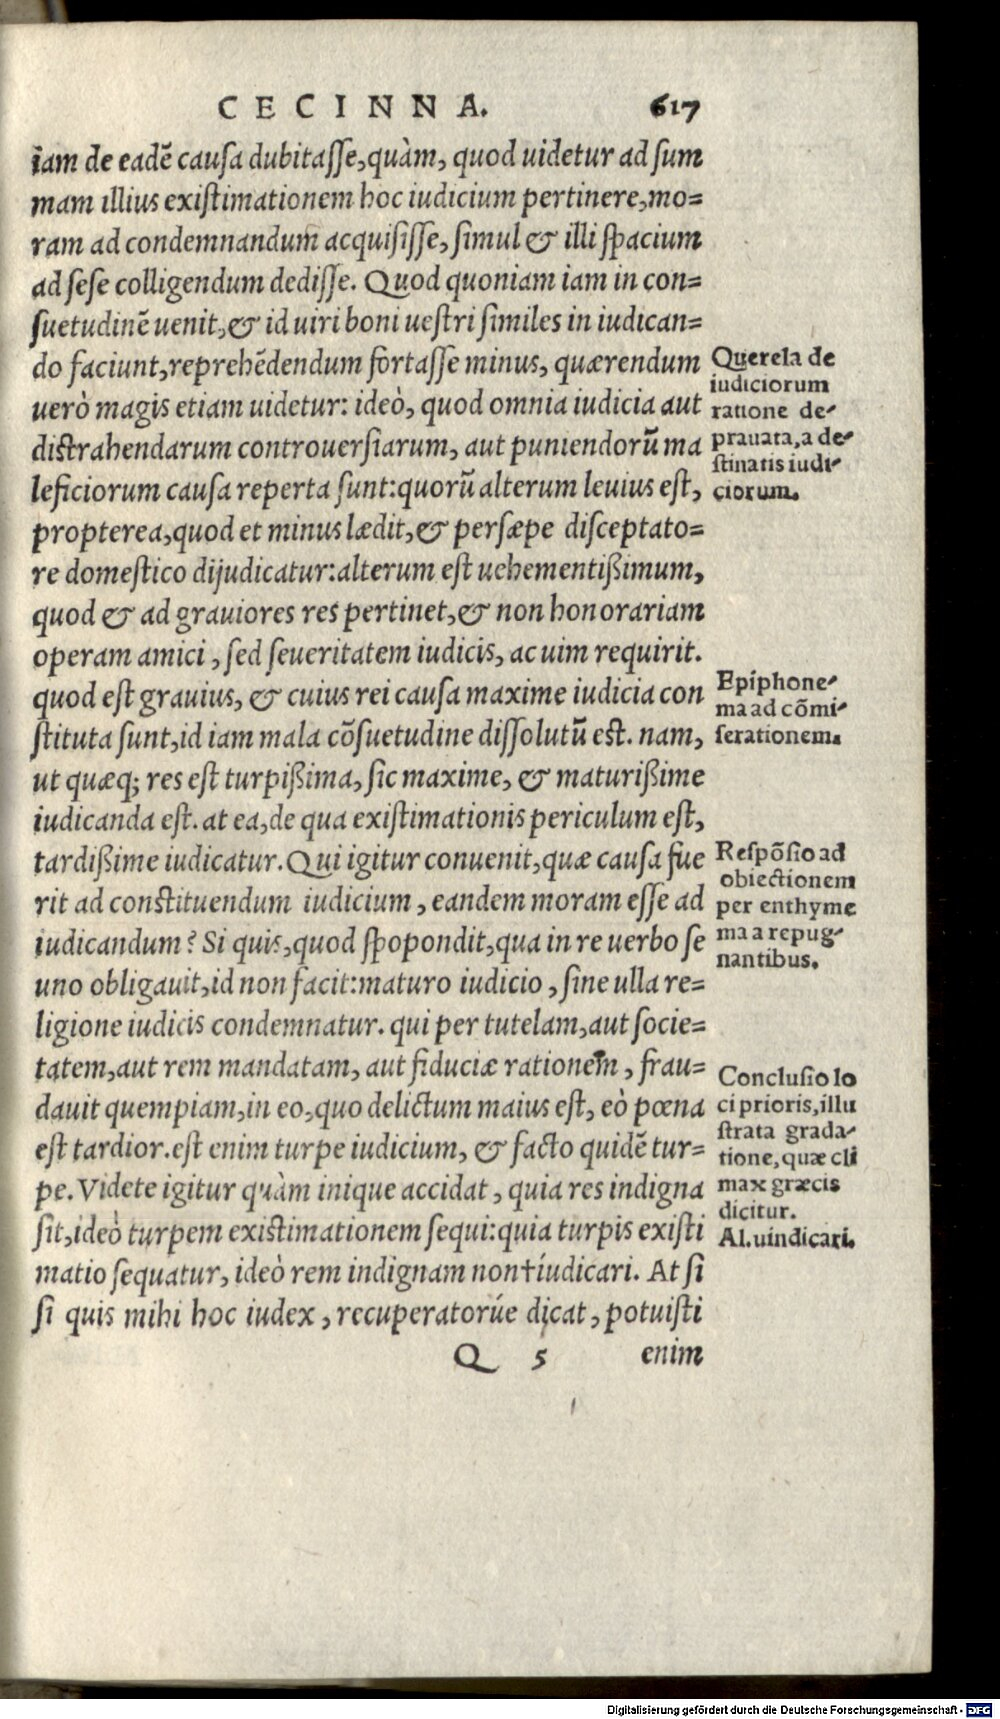 CECINNA. 617
iam de eadē causa dubitasse, quàm, quod uidetur ad sum
mam illius existimationem hoc iudicium pertinere, mo=
ram ad condemnandum acquisisse, simul & illi spacium
ad sese colligendum dedisse. Quod quoniam iam in con=
suetudinē uenit, & id uiri boni uestri similes in iudican=
do faciunt, reprehēdendum fortasse minus, quærendum
uerò magis etiam uidetur: ideò, quod omnia iudicia aut
distrahendarum controuersiarum, aut puniendorū ma
leficiorum causa reperta sunt: quorū alterum leuius est,
propterea, quod et minus lædit, & persæpe disceptato=
re domestico dijudicatur: alterum est uehementißimum,
quod & ad grauiores res pertinet, & non honorariam
operam amici, sed seueritatem iudicis, ac uim requirit.
quod est grauius, & cuius rei causa maxime iudicia con
stituta sunt, id iam mala cōsuetudine dissolutū est. nam,
ut quæq; res est turpißima, sic maxime, & maturißime
iudicanda est. at ea, de qua existimationis periculum est,
tardißime iudicatur. Qui igitur conuenit, quæ causa fue
rit ad constituendum iudicium, eandem moram esse ad
iudicandum? Si quis, quod spopondit, qua in re uerbo se
uno obligauit, id non facit: maturo iudicio, sine ulla re=
ligione iudicis condemnatur. qui per tutelam, aut socie=
tatem, aut rem mandatam, aut fiduciæ rationem, frau=
dauit quempiam, in eo, quo delictum maius est, eò pœna
est tardior. est enim turpe iudicium, & facto quidē tur=
pe. Videte igitur quàm inique accidat, quia res indigna
sit, ideò turpem existimationem sequi: quia turpis existi
matio sequatur, ideò rem indignam non†iudicari. At si
si quis mihi hoc iudex, recuperatorúe dicat, potuisti
Q 5 enim
Querela de
iudiciorum
ratione de-
prauata, a de-
stinatis iudi-
ciorum.
Epiphone-
ma ad cōmi-
serationem.
Respōsio ad
obiectionem
per enthyme
ma a repug-
nantibus.
Conclusio lo
ci prioris, illu
strata grada-
tione, quæ cli
max græcis
dicitur.
Al. uindicari.
Digitalisierung gefördert durch die Deutsche Forschungsgemeinschaft - DFG